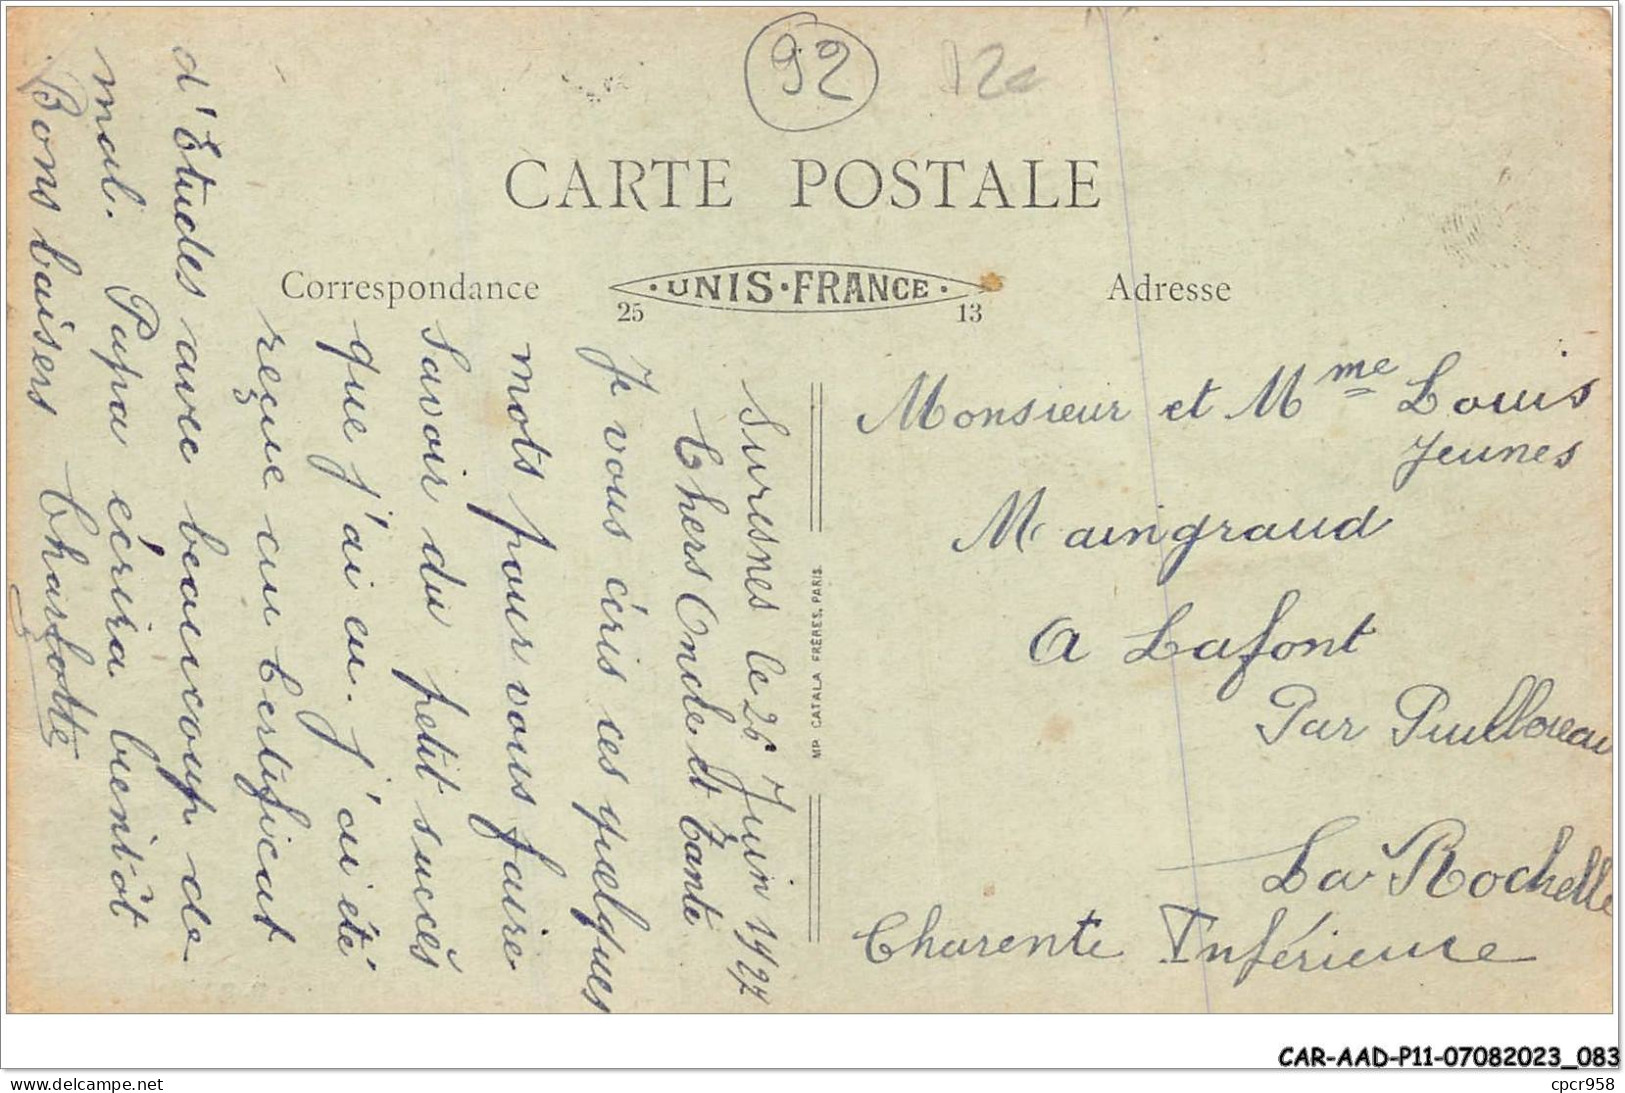 92
12e
CARTE POSTALE
Correspondance
·UNIS·FRANCE·
25
13
Adresse
Suresnes le 26 Juin 1927
Chers Oncle et Tante
Je vous écris ces quelques
mots pour vous faire
savoir du petit succès
que j'ai eu. J'ai été
reçue au Certificat
d'Etudes avec beaucoup de
mal. Papa écrira bientôt
Bons baisers Charlotte
IMP. CATALA FRÈRES, PARIS
Monsieur et Mme Louis
Jeunes
Maingraud
A Lafont
Par Puilboreau
La Rochelle
Charente Inférieure
CAR-AAD-P11-07082023_083
www.delcampe.net
cpcr958